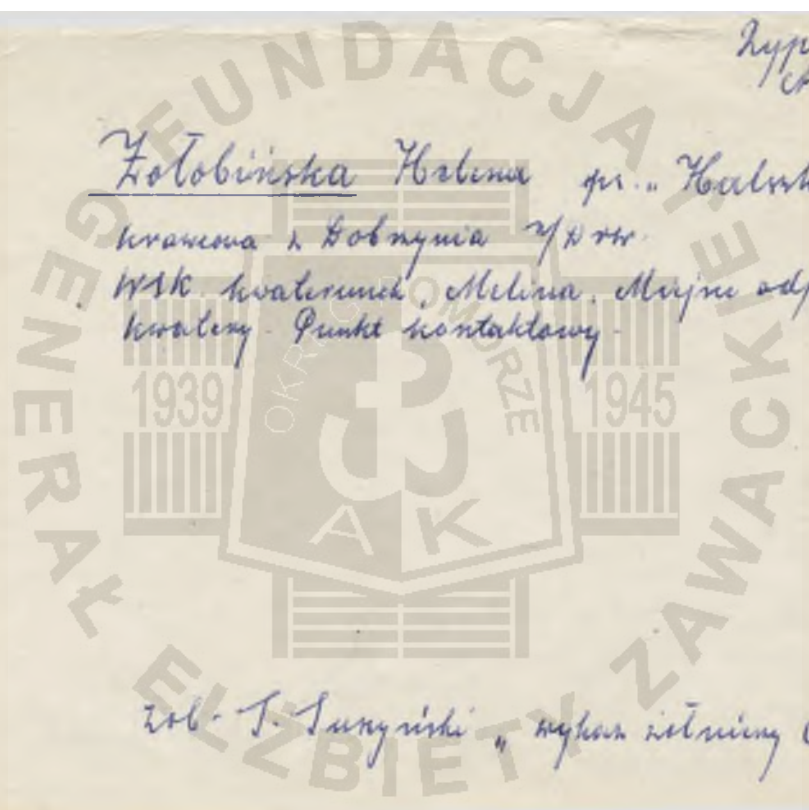 Żołobińska Helena ps. „Halszk
krawcowa z Dobrzynia n/Drw.
WSK. kwaterunek. Melina. Miejsc odp
kwatery. Punkt kontaktowy.
zob. T. „ wykaz żołnierzy
FUNDACJA
GENERAŁ ELŻBIETY ZAWACKIEJ
OKRĘG POMORZE
1939
1945
AK